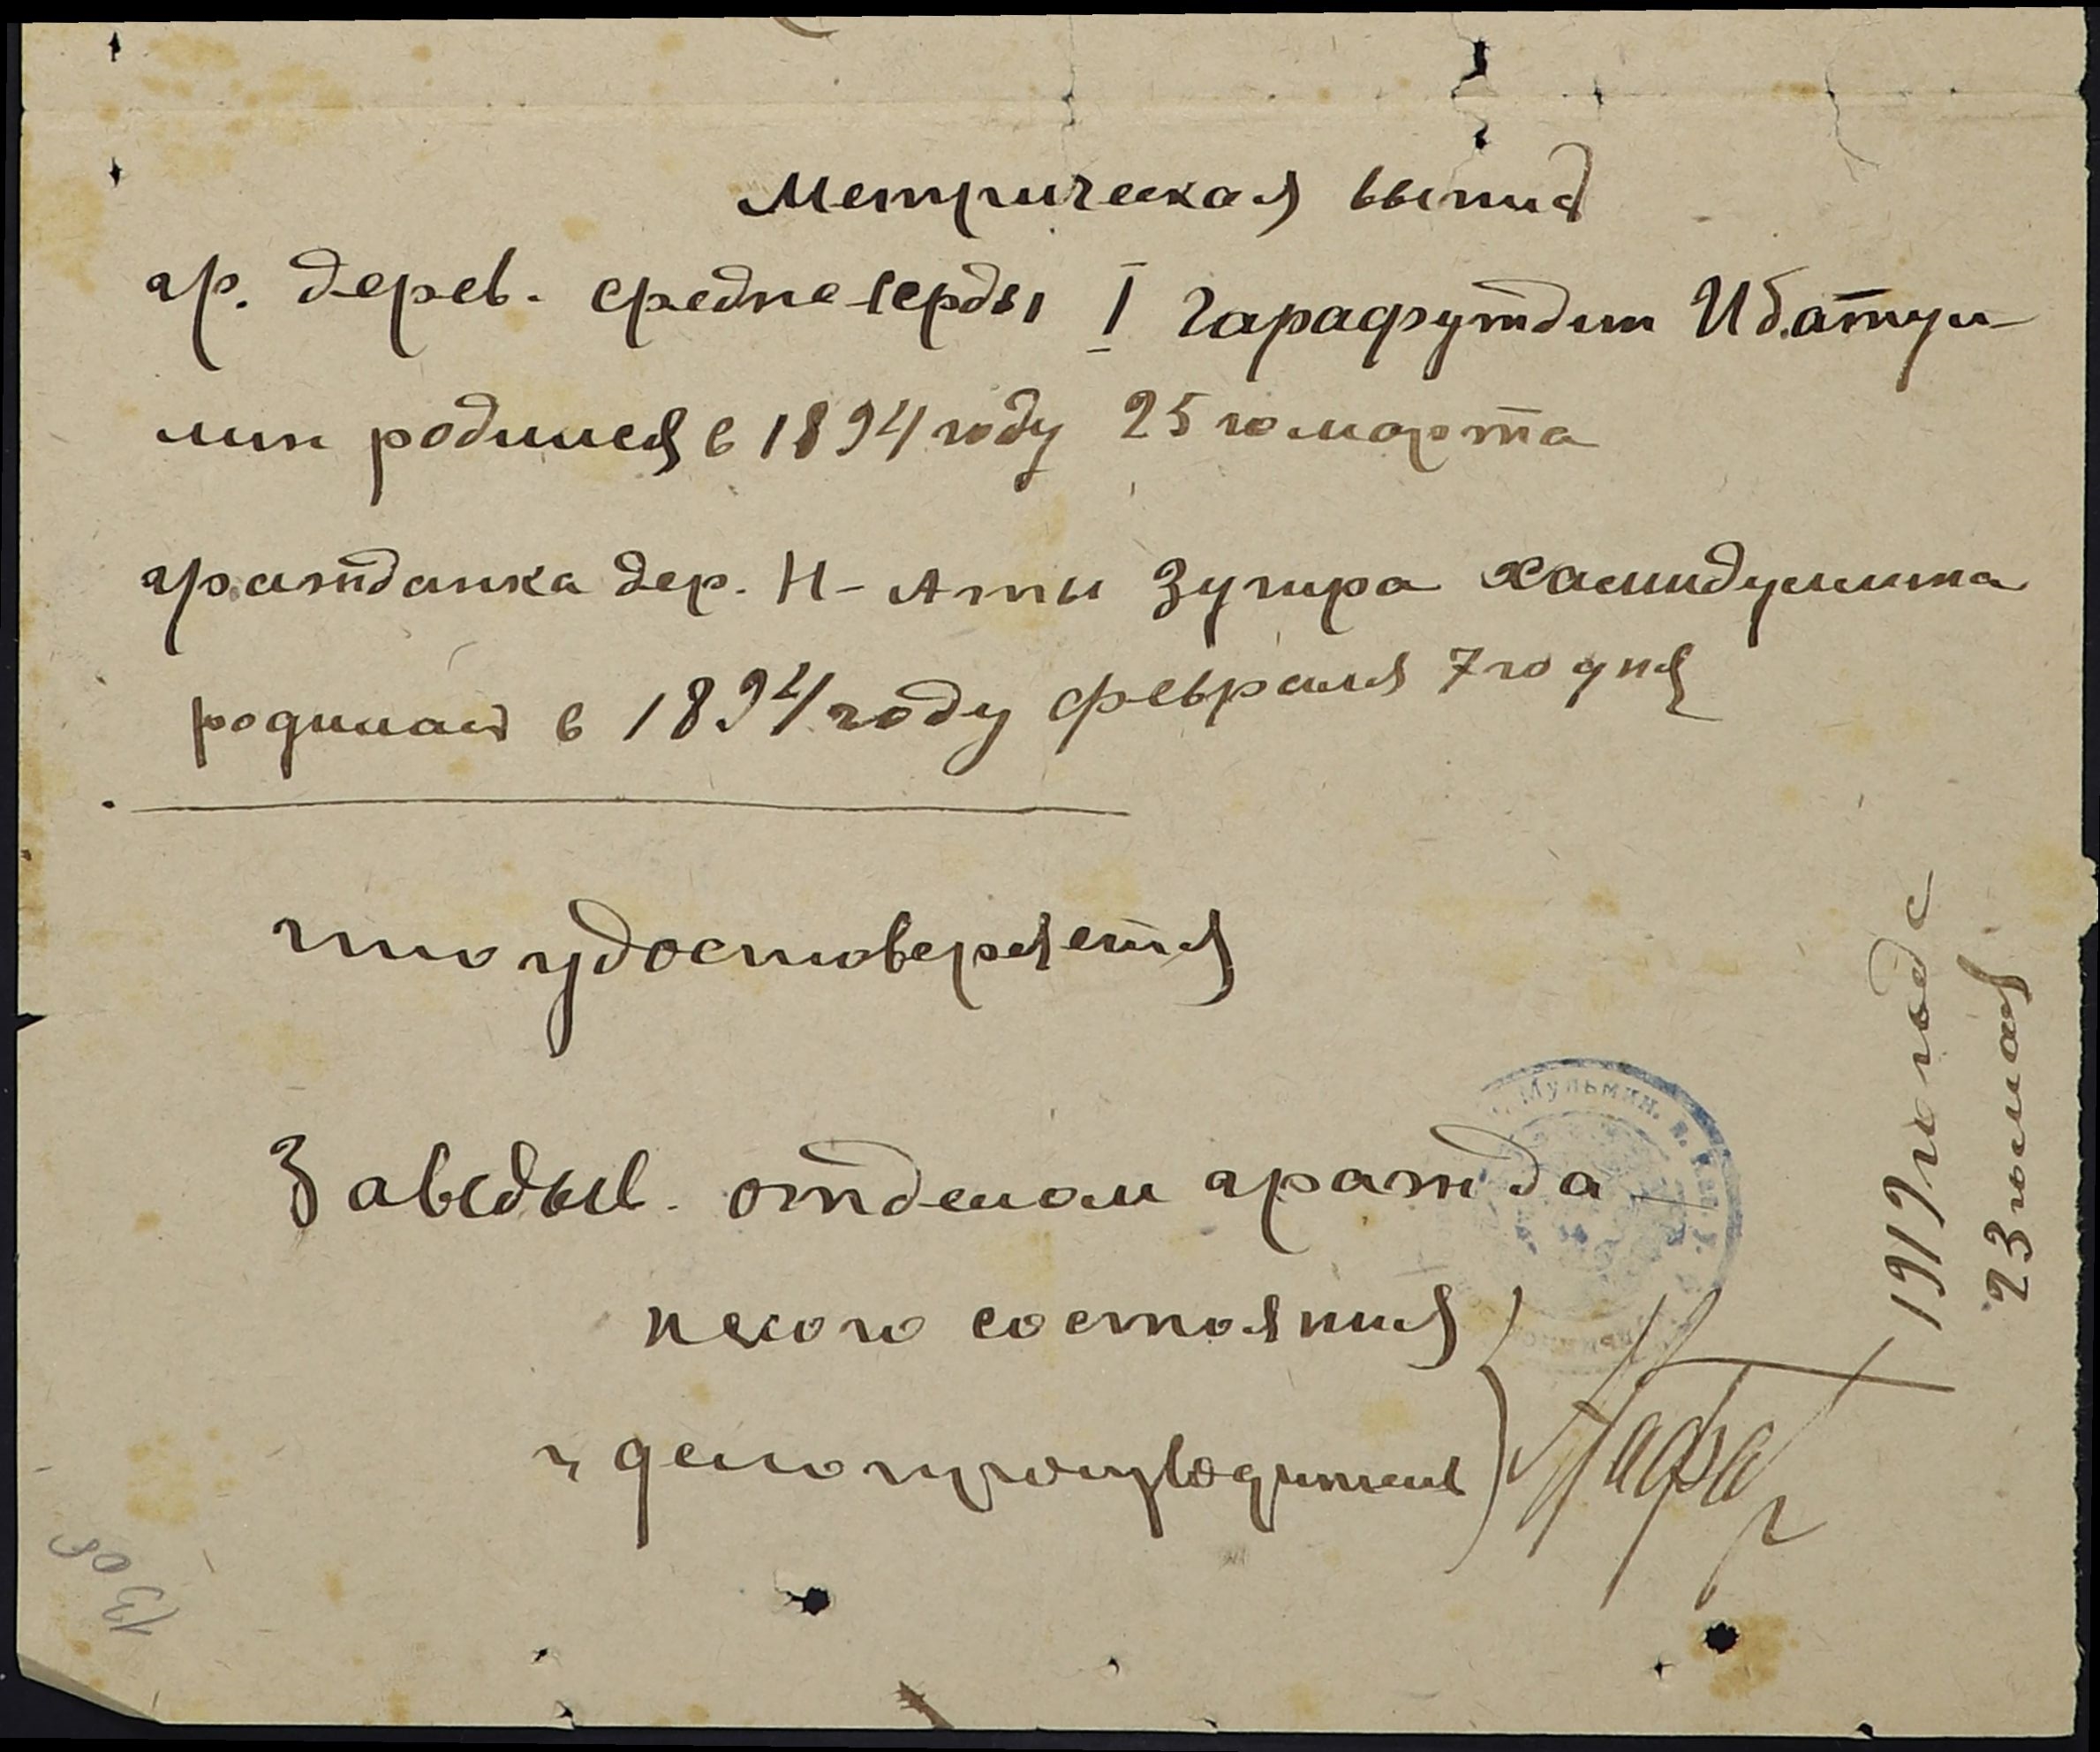 Метрическая выпис
гр. дерев. средне серды I Гарафутдин Ибатул-
лин родился в 1894 году 25 го марта
гражданка дер. Н- Аты Зугира хамидулина
родилась в 1894 году февраля 7 го дня
что удостоверяется
Заведыв. отделом гражда-
нского состояния
и делопроизводитель
1919 го года
23 го мая
Мульмин. в.
1305